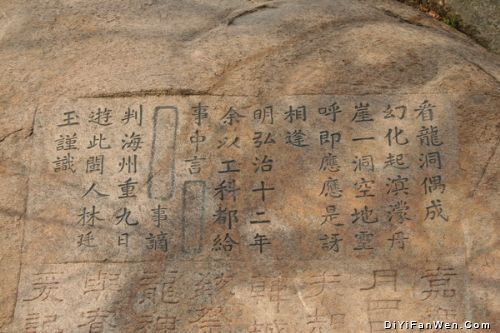 看龍洞偶成
幻化起滨濛丹
崖一洞空地靈
呼即應應是訝
相逢
明弘治十二年
余以工科都給
事中言
事謫
判海州重九日
遊此閩人林廷
玉謹識
嘉
月
韓城
龍
與春
DiYiFanWen.Com